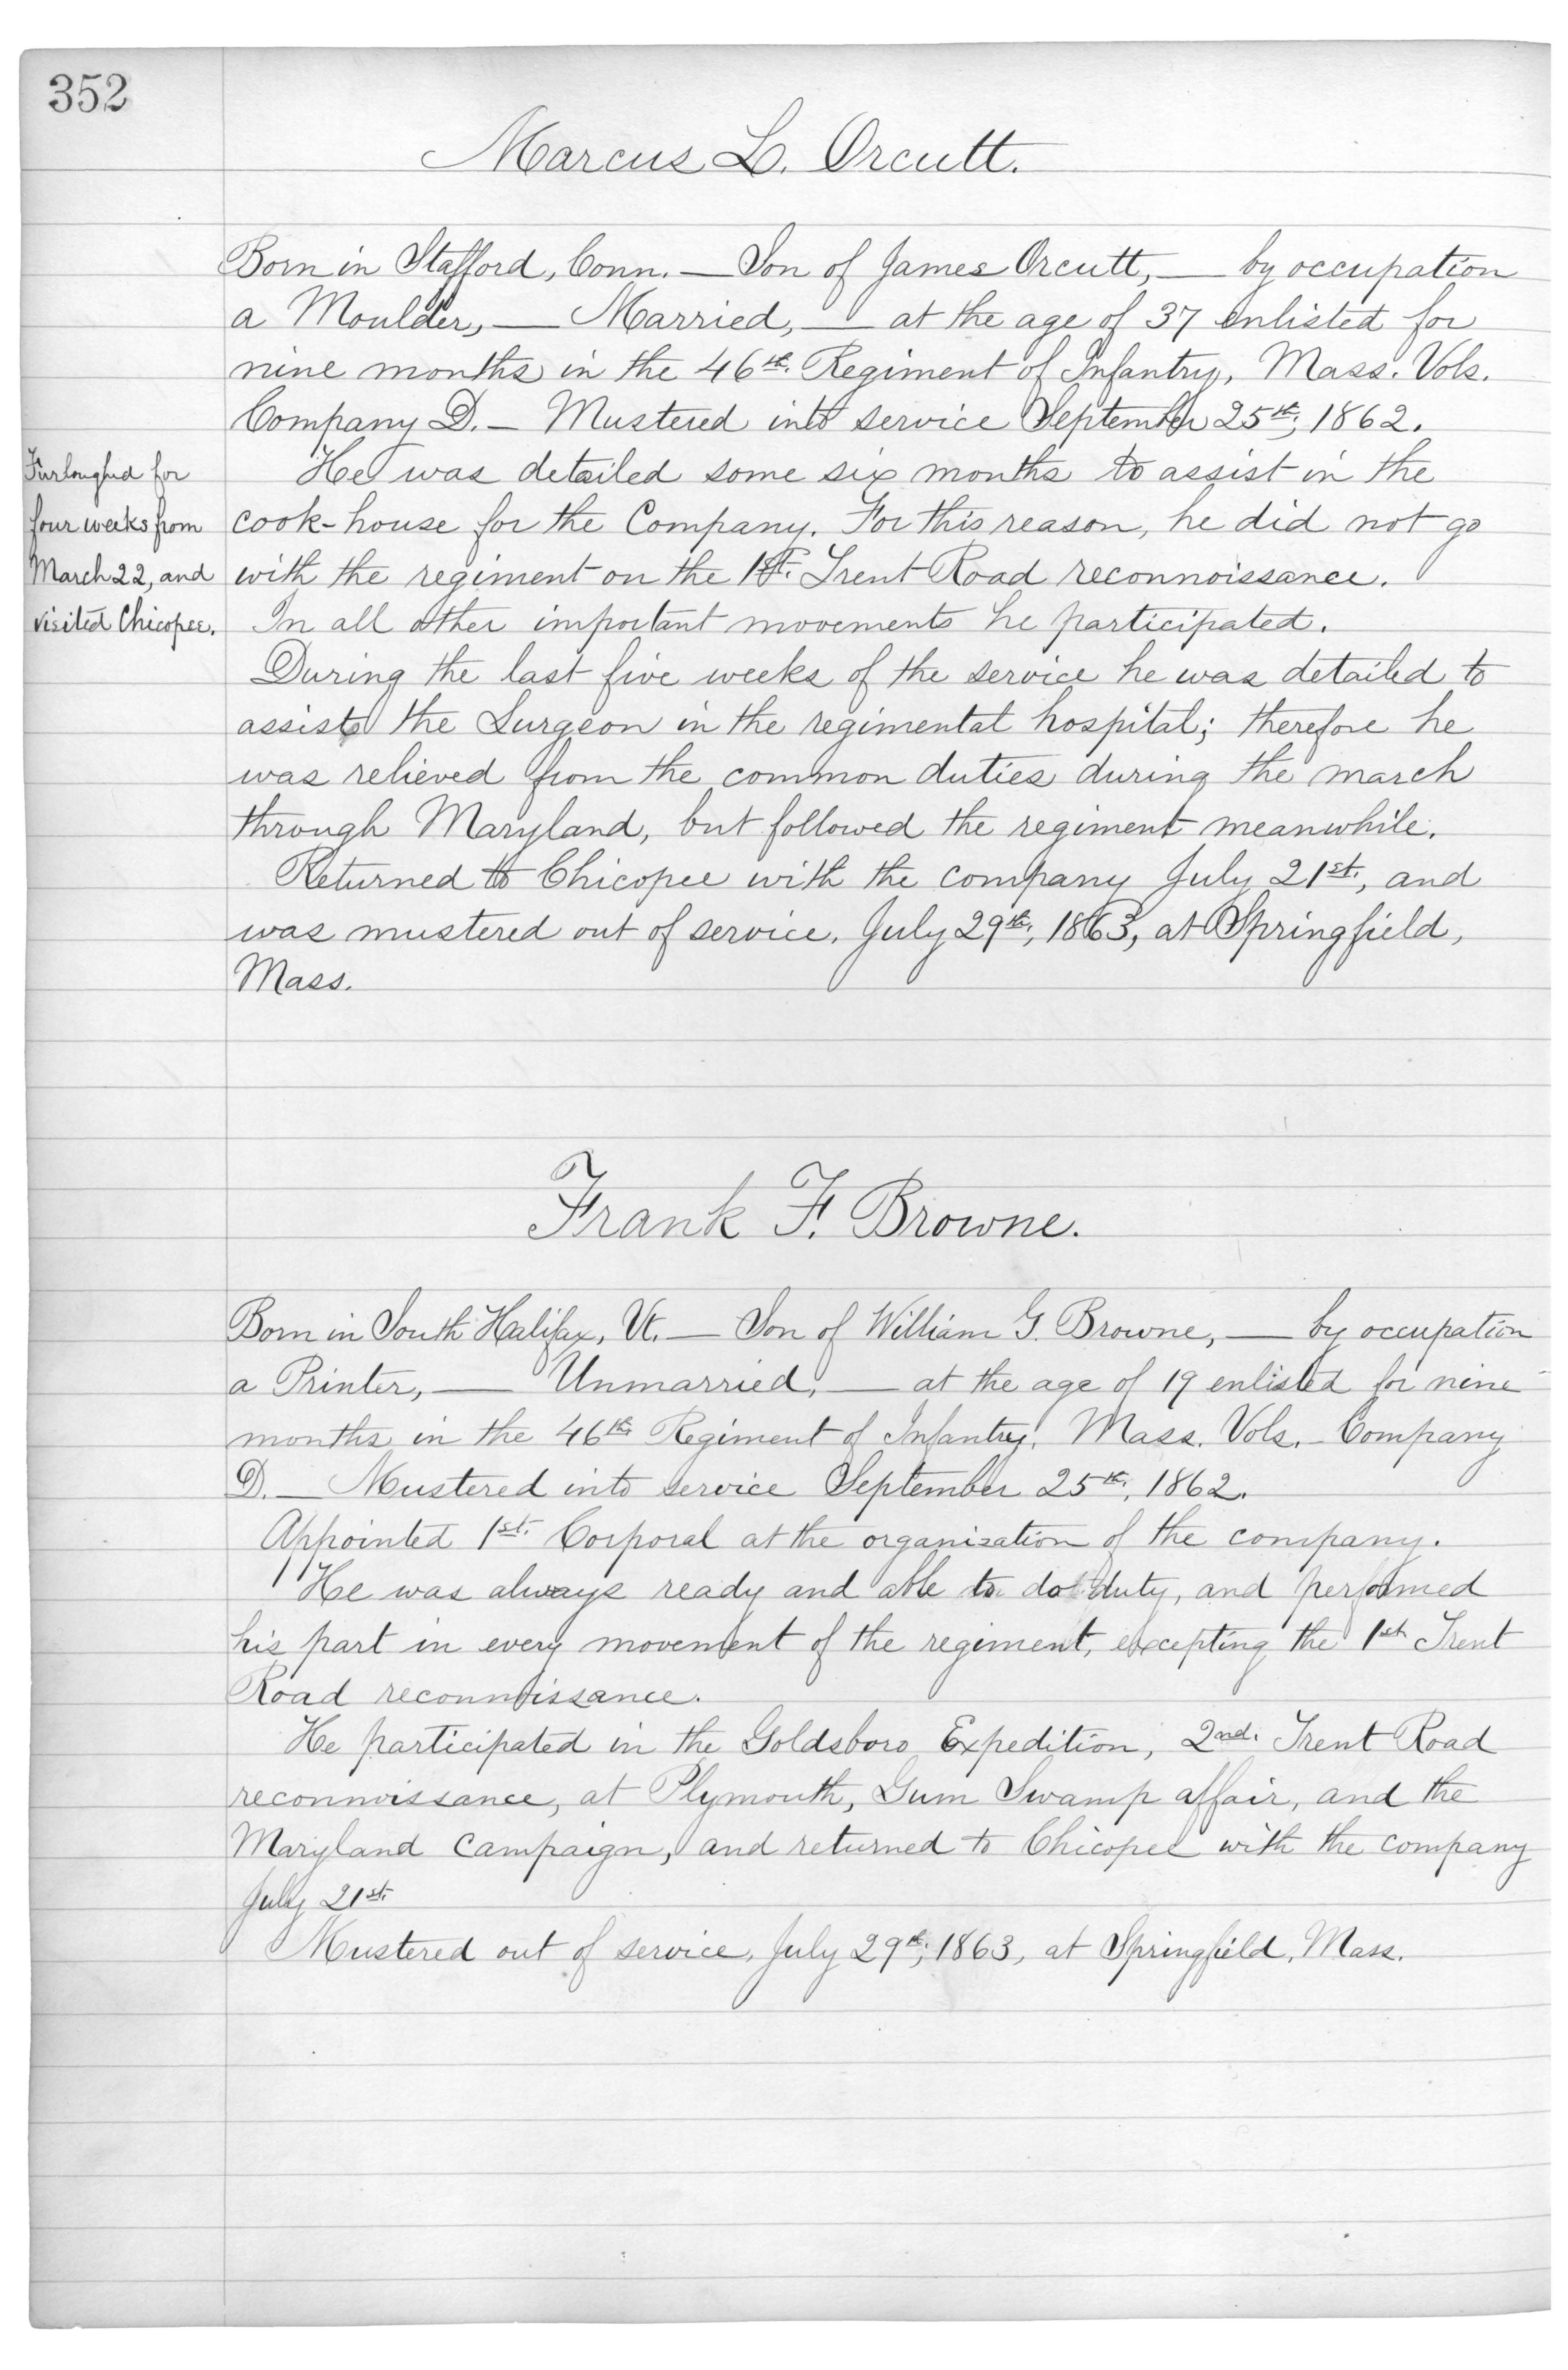 352
Marcus L. Orcutt.
Born in Stafford, Conn. — Son of James Orcutt, — by occupation
a Moulder, — Married, — at the age of 37 enlisted for
nine months in the 46th. Regiment of Infantry, Mass. Vols.
Company D. — Mustered into service September 25th, 1862.
Furloughed for
four weeks from
March 22, and
visited Chicopee.
He was detailed some six months to assist in the
cook-house for the Company. For this reason, he did not go
with the regiment on the 1st. Trent Road reconnoissance.
In all other important movements he participated.
During the last five weeks of the service he was detailed to
assist the Surgeon in the regimental hospital; therefore he
was relieved from the common duties during the march
through Maryland, but followed the regiment meanwhile.
Returned to Chicopee with the company July 21st., and
was mustered out of service, July 29th, 1863, at Springfield,
Mass.
Frank F. Browne.
Born in South Halifax, Vt. — Son of William G. Browne, — by occupation
a Printer, — Unmarried, — at the age of 19 enlisted for nine
months in the 46th Regiment of Infantry, Mass. Vols. — Company
D. — Mustered into service September 25th, 1862.
Appointed 1st. Corporal at the organization of the company.
He was always ready and able to do duty, and performed
his part in every movement of the regiment, excepting the 1st Trent
Road reconnoissance.
He participated in the Goldsboro Expedition, 2nd. Trent Road
reconnoissance, at Plymouth, Gum Swamp affair, and the
Maryland Campaign, and returned to Chicopee with the company
July 21st.
Mustered out of service, July 29th, 1863, at Springfield, Mass.